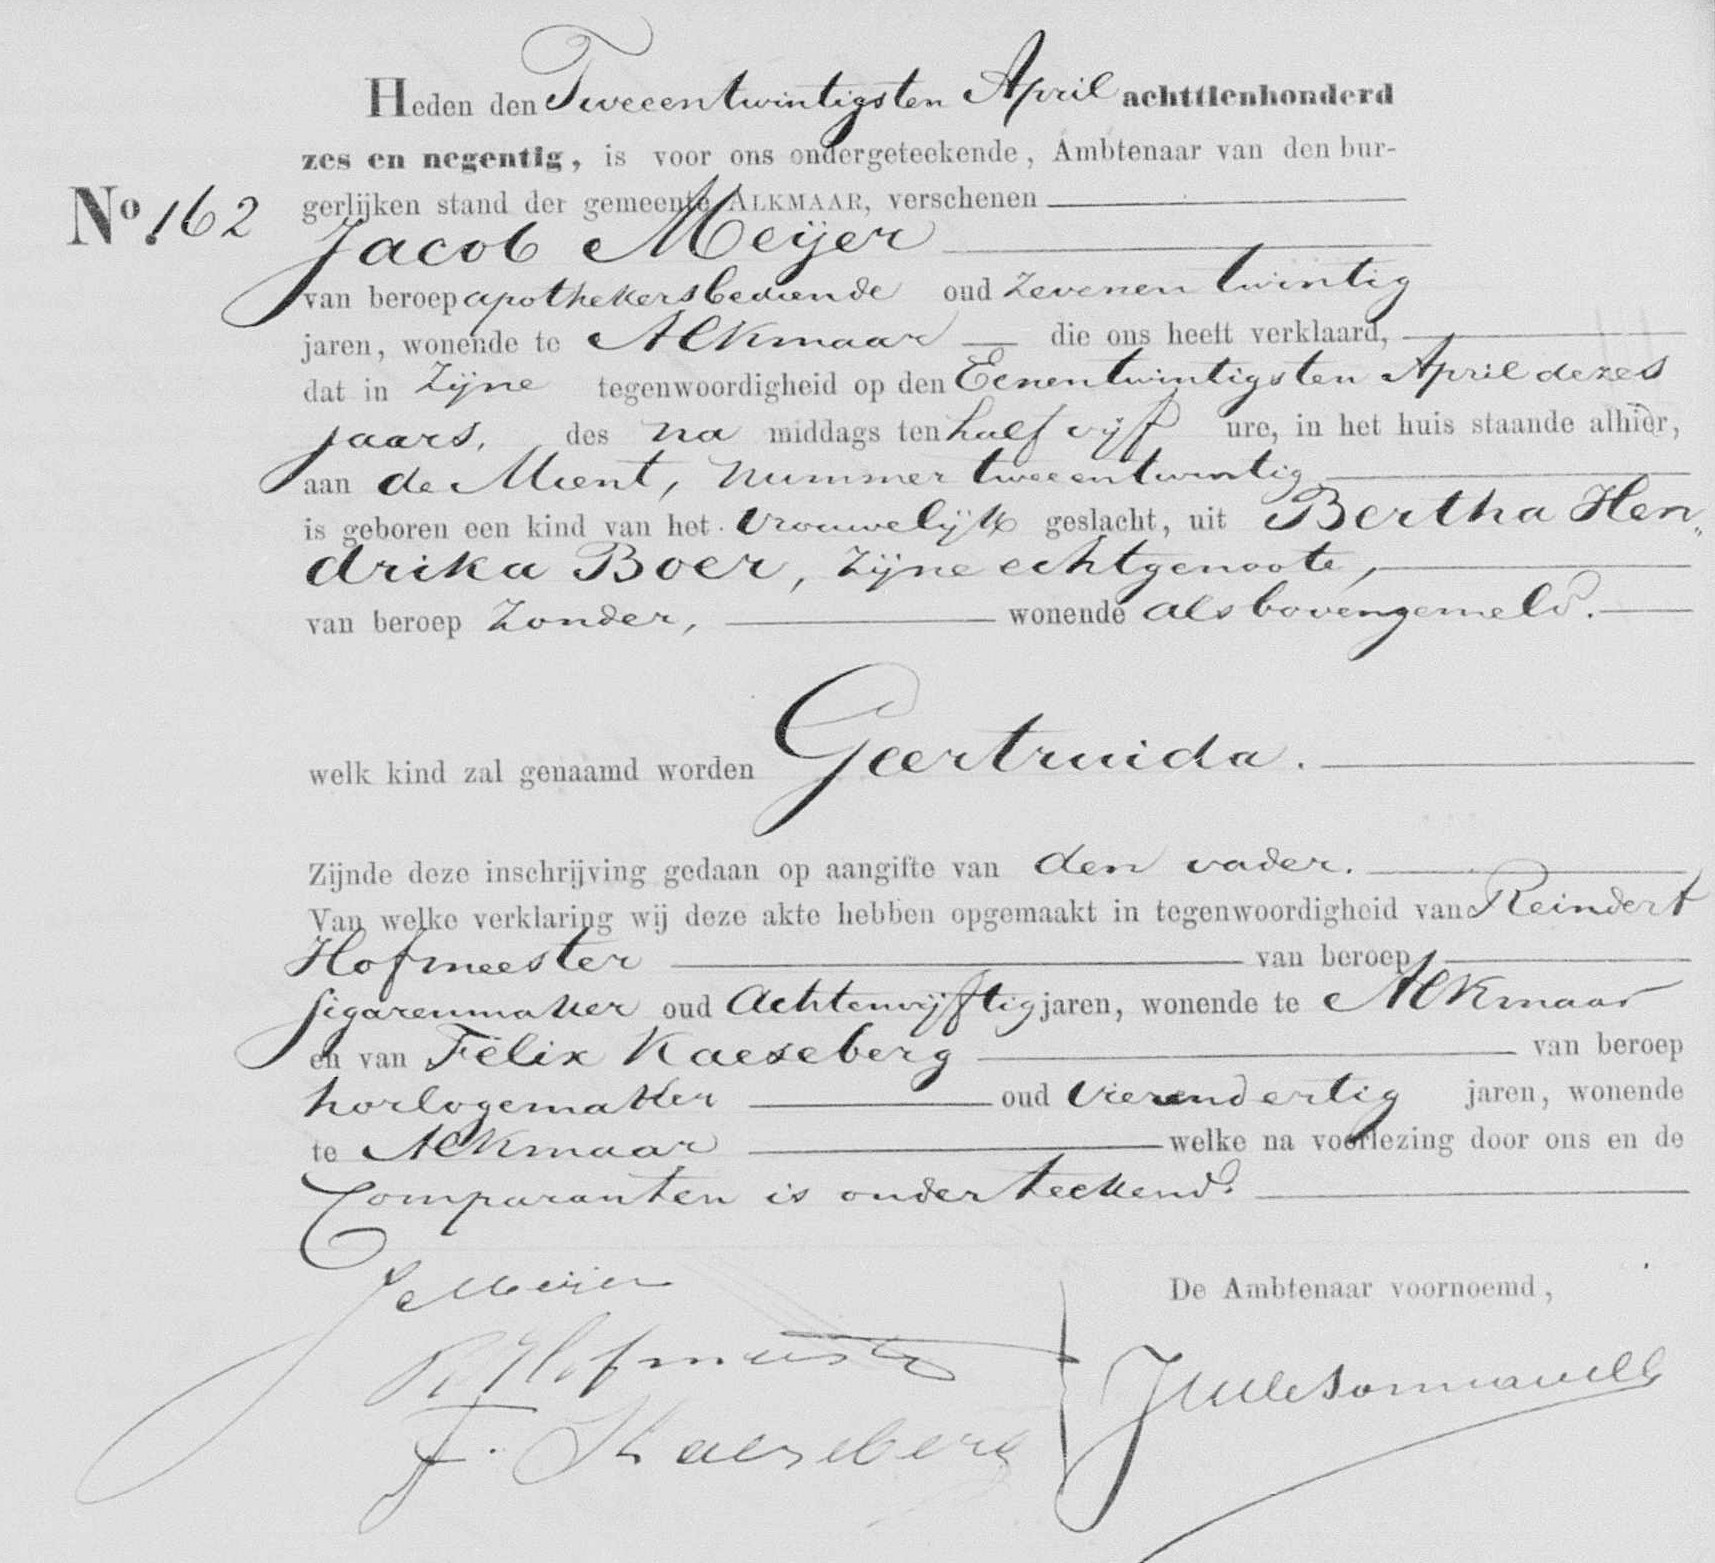 Heden den Tweeentwintigsten April achttienhonderd
zes en negentig, is voor ons ondergeteekende, Ambtenaar van den bur-
gerlijken stand der gemeente ALKMAAR, verschenen
No. 162
Jacob Meijer
van beroep apothekersbediende oud zevenen twintig
jaren, wonende te Alkmaar die ons heeft verklaard,
dat in zijne tegenwoordigheid op den Eenentwintigsten April dezes
jaars, des na middags ten half vijf ure, in het huis staande alhier,
aan de Mient, nummer tweeentwintig
is geboren een kind van het vrouwelijk geslacht, uit Bertha Hen„
drika Boer, zijne echtgenoote,
van beroep zonder, wonende als bovengemeld.
welk kind zal genaamd worden Geertruida.
Zijnde deze inschrijving gedaan op aangifte van den vader.
Van welke verklaring wij deze akte hebben opgemaakt in tegenwoordigheid van Reindert
Hofmeester van beroep
sigarenmaker oud Achtenvijftig jaren, wonende te Alkmaar
en van Felix Kaeseberg van beroep
horlogemaker oud vierendertig jaren, wonende
te Alkmaar welke na voorlezing door ons en de
Comparanten is onderteekend.
J Meijer
De Ambtenaar voornoemd,
R Hofmeester
F. Kaeseberg